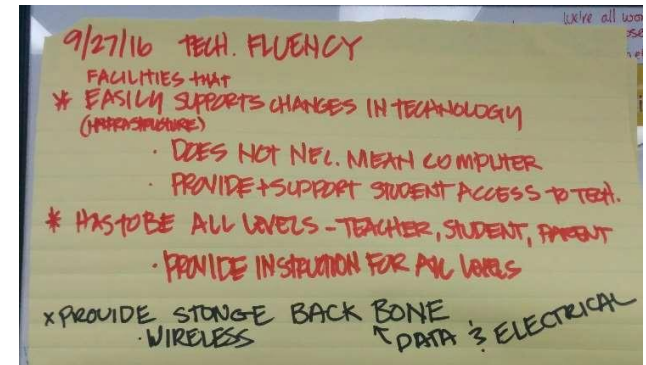 we're all wor
9/27/16 TECH. FLUENCY
FACILITIES THAT
* EASILY SUPPORTS CHANGES IN TECHNOLOGY
(INFRASTRUCTURE)
· DOES NOT NEC. MEAN COMPUTER
· PROVIDE + SUPPORT STUDENT ACCESS TO TECH.
* HAS TO BE ALL LEVELS - TEACHER, STUDENT, PARENT
· PROVIDE INSTRUCTION FOR ALL LEVELS
x PROVIDE STONGE BACK BONE
· WIRELESS ↑ DATA & ELECTRICAL